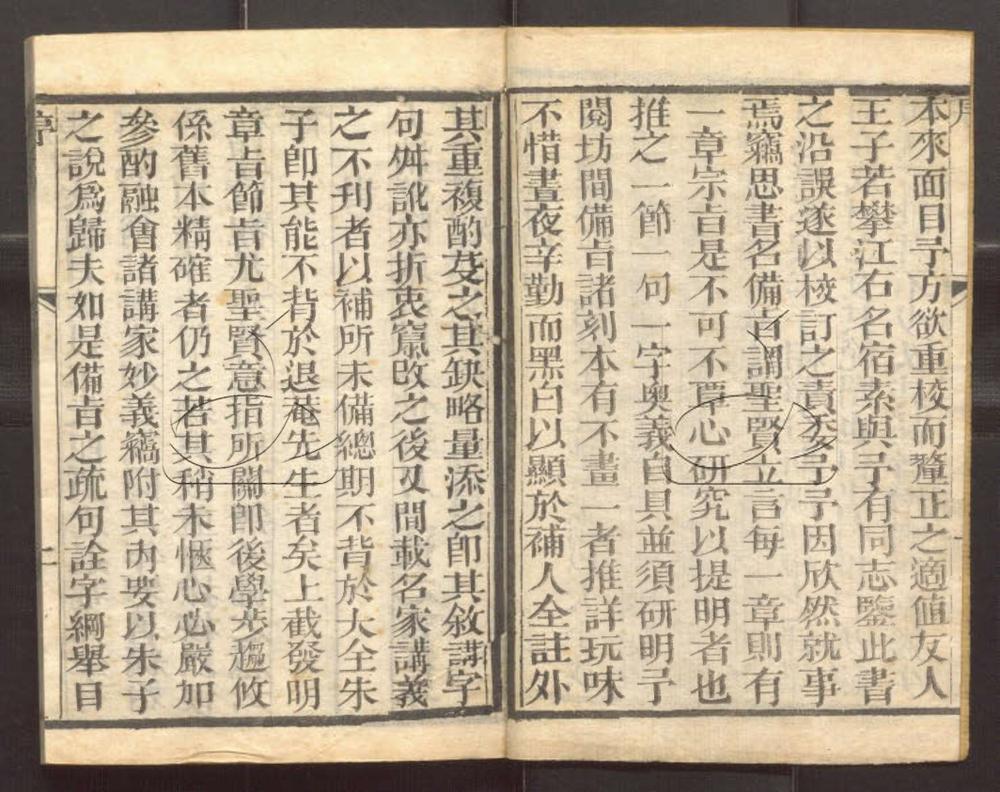 本來面目予方欲重校而釐正之適値友人
王子若攀江右名宿素與予有同志鑒此書
之沿誤遂以校訂之責委予予因欣然就事
焉竊思書名備旨謂聖賢立言每一章則有
一章宗旨是不可不覃心研究以提明者也
推之一節一句一字奧義自具並須研明予
閱坊間備旨諸刻本有不畫一者推詳玩味
不惜晝夜辛勤而黑白以顯於補人全註外
其重複酌芟之其缺略量添之卽其敘講字
句舛訛亦折衷竄改之後又間載名家講義
之不刋者以補所未備總期不背於大全朱
子卽其能不背於退菴先生者矣上截發明
章旨節旨尤聖賢意指所關卽後學步趨攸
係舊本精確者仍之若其稍未愜心必嚴加
參酌融會諸講家妙義竊附其內要以朱子
之說爲歸夫如是備旨之疏句詮字綱舉目
序